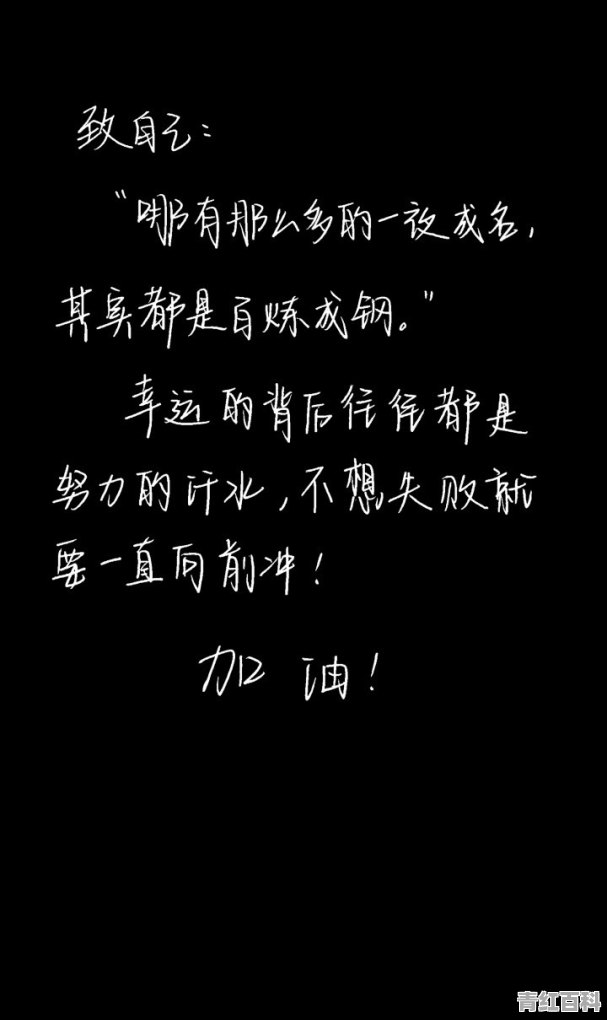 致自己：
“哪有那么多的一夜成名，
其实都是百炼成钢。”
幸运的背后往往都是
努力的汗水，不想失败就
要一直向前冲！
加油！
青红百科